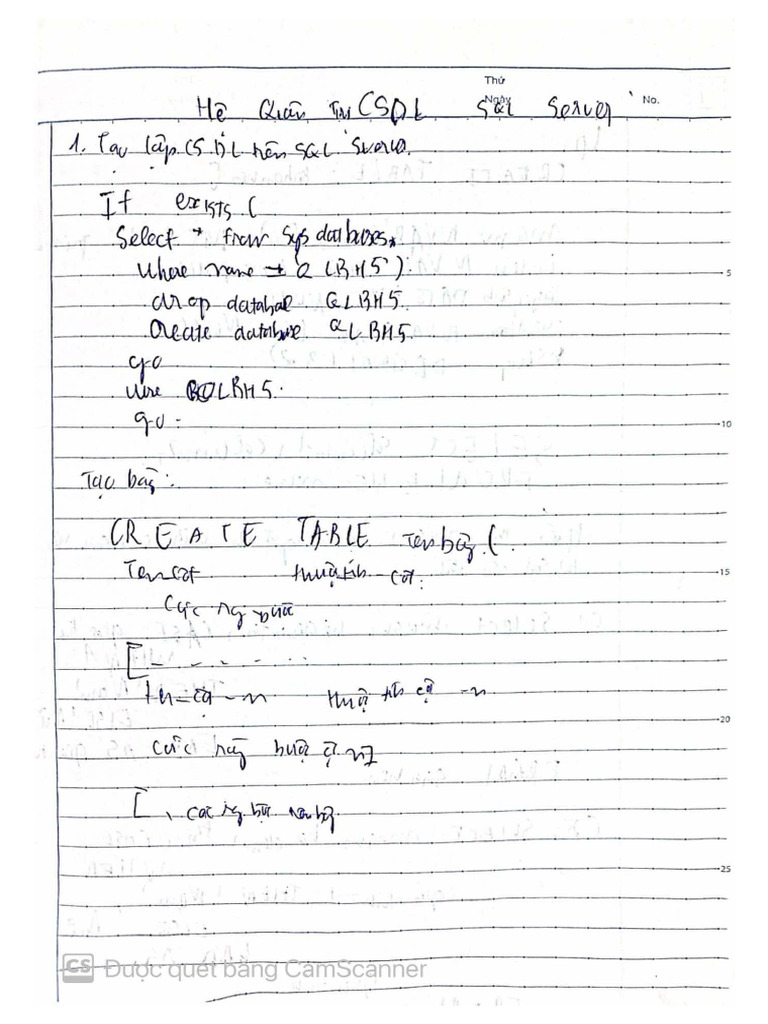 Thứ
Ngày
No.
Hệ Quản Trị CSDL SQL Server
1. Tạo lập CSDL trên SQL Server
If exists (
Select * from sys databases
where name = QLBH5')
drop database QLBH5
Create database QLBH5
go
use QLBH5
go
Tạo bảng:
CREATE TABLE Tên bảng (
Tên cột thuộc tính cột
Các ràng buộc
[
tên_cột_n thuộc tính cột _n
các ràng buộc cột n]
[, các ràng buộc
5
10
15
20
25
CS Được quét bằng CamScanner